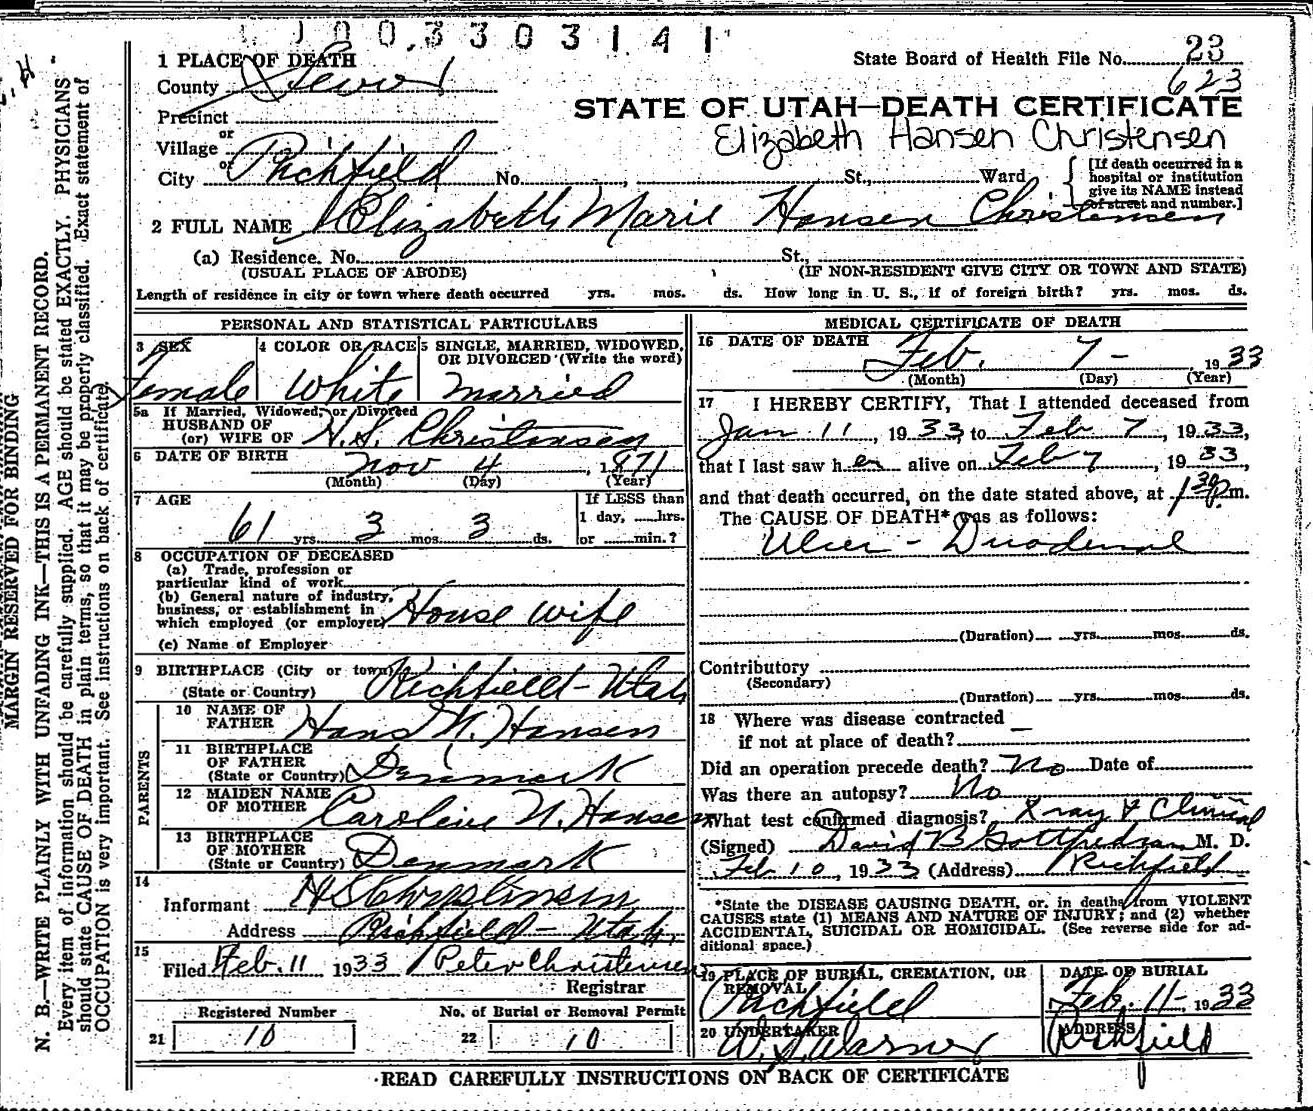 1003303141
State Board of Health File No. 23
623
1 PLACE OF DEATH
County Sevier
STATE OF UTAH—DEATH CERTIFICATE
Precinct
or
Elizabeth Hansen Christensen
Village
or
City Richfield No. , St., Ward
[If death occurred in a
hospital or institution
give its NAME instead
of street and number.]
2 FULL NAME Elizabeth Marie Hansen Christensen
(a) Residence. No. St.,
(USUAL PLACE OF ABODE) (IF NON-RESIDENT GIVE CITY OR TOWN AND STATE)
Length of residence in city or town where death occurred yrs. mos. ds. How long in U. S., if of foreign birth? yrs. mos. ds.
PERSONAL AND STATISTICAL PARTICULARS
3 SEX 4 COLOR OR RACE 5 SINGLE, MARRIED, WIDOWED,
OR DIVORCED (Write the word)
Female White Married
5a If Married, Widowed, or Divorced
HUSBAND OF
(or) WIFE OF H.S. Christensen
6 DATE OF BIRTH Nov 4, 1871
(Month) (Day) (Year)
7 AGE If LESS than
1 day, hrs.
61 yrs 3 mos 3 ds. or min.?
8 OCCUPATION OF DECEASED
(a) Trade, profession or
particular kind of work
(b) General nature of industry,
business, or establishment in
which employed (or employer) House wife
(c) Name of Employer
9 BIRTHPLACE (City or town)
(State or Country) Richfield - Utah
PARENTS
10 NAME OF
FATHER Hans N. Hansen
11 BIRTHPLACE
OF FATHER
(State or Country) Denmark
12 MAIDEN NAME
OF MOTHER Caroline N. Hansen
13 BIRTHPLACE
OF MOTHER
(State or Country) Denmark
14
Informant H S Christensen
Address Richfield - Utah.
15
Filed Feb. 11 1933 Peter Christensen
Registrar
Registered Number No. of Burial or Removal Permit
21 10 22 10
MEDICAL CERTIFICATE OF DEATH
16 DATE OF DEATH
Feb. 7 - 1933
(Month) (Day) (Year)
17 I HEREBY CERTIFY, That I attended deceased from
Jan 11, 1933 to Feb 7, 1933,
that I last saw her alive on Feb 7, 1933,
and that death occurred, on the date stated above, at 1 30 P m.
The CAUSE OF DEATH* was as follows:
Ulcer - Duodenal
(Duration) yrs. mos. ds.
Contributory
(Secondary)
(Duration) yrs. mos. ds.
18 Where was disease contracted
if not at place of death? —
Did an operation precede death? No Date of
Was there an autopsy? No
What test confirmed diagnosis? Xray & Clinical
(Signed) David B Gottfredson M. D.
Feb 10, 1933 (Address) Richfield
*State the DISEASE CAUSING DEATH, or, in deaths from VIOLENT
CAUSES state (1) MEANS AND NATURE OF INJURY; and (2) whether
ACCIDENTAL, SUICIDAL OR HOMICIDAL. (See reverse side for ad-
ditional space.)
19 PLACE OF BURIAL, CREMATION, OR DATE OF BURIAL
REMOVAL
Richfield Feb. 11-1933
20 UNDERTAKER ADDRESS
W. S. Warner Richfield
READ CAREFULLY INSTRUCTIONS ON BACK OF CERTIFICATE
MARGIN RESERVED FOR BINDING
N. B.—WRITE PLAINLY WITH UNFADING INK—THIS IS A PERMANENT RECORD.
Every item of information should be carefully supplied. AGE should be stated EXACTLY. PHYSICIANS
should state CAUSE OF DEATH in plain terms, so that it may be properly classified. Exact statement of
OCCUPATION is very important. See instructions on back of certificate.